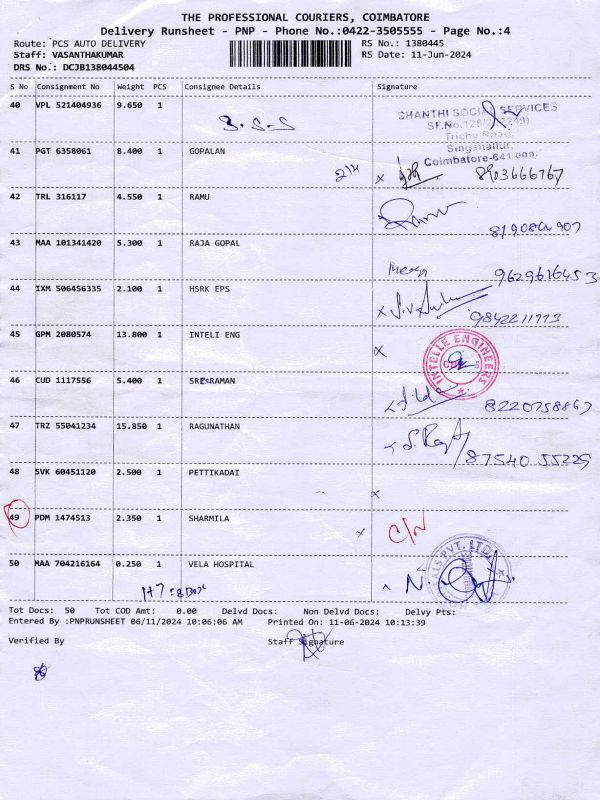 THE PROFESSIONAL COURIERS, COIMBATORE
Delivery Runsheet - PNP - Phone No.:0422-3505555 - Page No.:4
Route: PCS AUTO DELIVERY RS No.: 1380445
Staff: VASANTHAKUMAR RS Date: 11-Jun-2024
DRS No.: DCJB138044504
S No Consignment No Weight PCS Consignee Details Signature
40 VPL 521404936 9.650 1
S.S.S
SHANTHI SOCIAL SERVICES
SF.No.
Trichy Road,
Singanallur,
Coimbatore-641 005.
41 PGT 6358061 8.400 1 GOPALAN
x 8903666767
42 TRL 316117 4.550 1 RAMU
43 MAA 101341420 5.300 1 RAJA GOPAL
9629616453
44 IXM 506456335 2.100 1 HSRK EPS
x 9842211773
45 GPM 2080574 13.800 1 INTELI ENG
x INTELLE ENGINEERS CBE
46 CUD 1117556 5.400 1 SRI RAMAN
8220758867
47 TRZ 55041234 15.850 1 RAGUNATHAN
87540 55229
48 SVK 60451120 2.500 1 PETTIKADAI
x
49 PDM 1474513 2.350 1 SHARMILA
x C/N
50 MAA 704216164 0.250 1 VELA HOSPITAL
PVT. LTD.
Tot Docs: 50 Tot COD Amt: 0.00 Delvd Docs: Non Delvd Docs: Delvy Pts:
Entered By :PNPRUNSHEET 06/11/2024 10:06:06 AM Printed On: 11-06-2024 10:13:39
Verified By Staff Signature